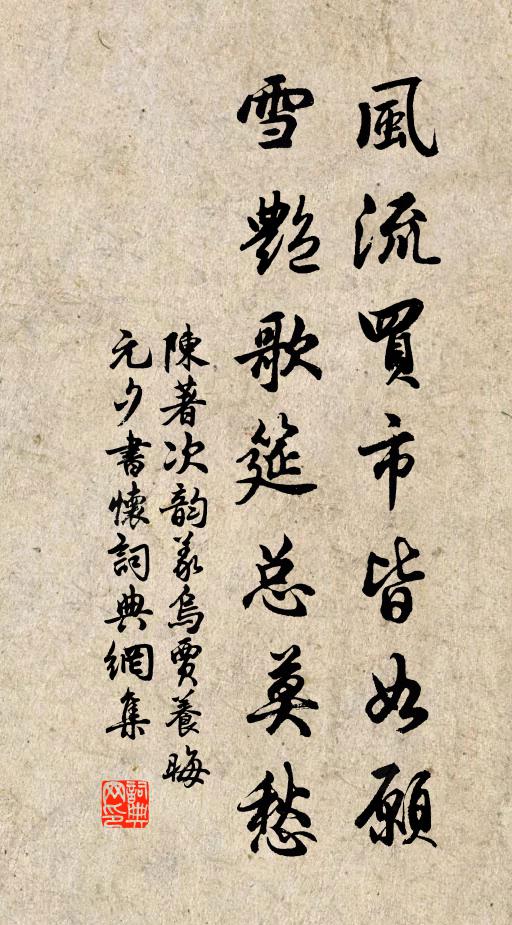 風流買市皆如願
雪艷歌筵总莫愁
陳著次韵義烏賈養晦
元夕書懷詞典網集
詞典网印